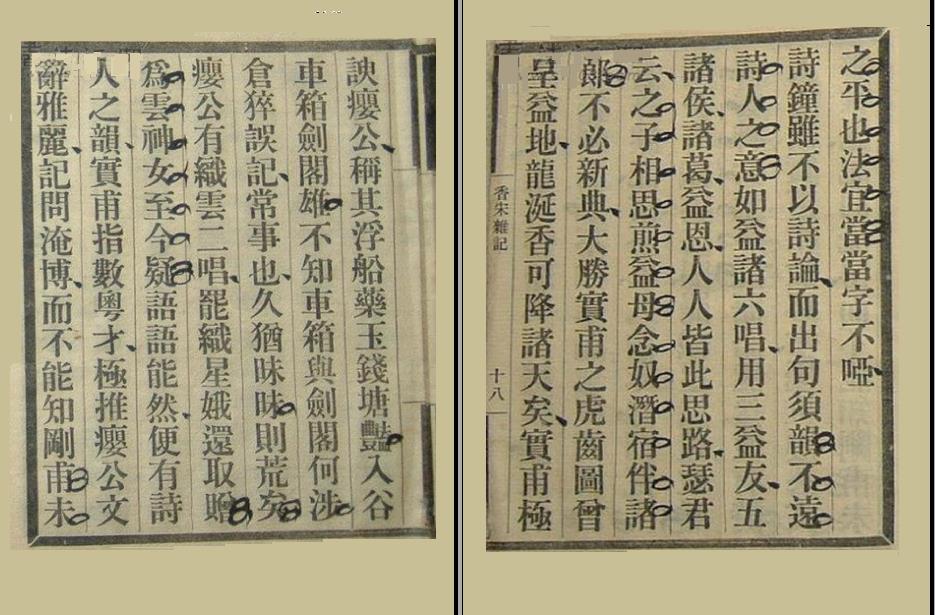 之平也法宜當當字不啞
詩鐘雖不以詩論而出句須韻不遠
詩人之意如益諸六唱用三益友五
諸侯諸葛益恩人人皆此思路瑟君
云之子相思煎益母念奴潛宿伴諸
郞不必新典大勝實甫之虎齒圖曾
呈益地龍涎香可降諸天矣實甫極
香宋雜記
十八
諛癭公稱其浮船藥玉錢塘豔入谷
車箱劍閣雄不知車箱與劍閣何涉
倉猝誤記常事也久猶昧昧則荒矣
癭公有織雲二唱罷織星娥還取贈
爲雲神女至今疑語語能然便有詩
人之韻實甫指數粵才極推癭公文
辭雅麗記問淹博而不能知剛甫未